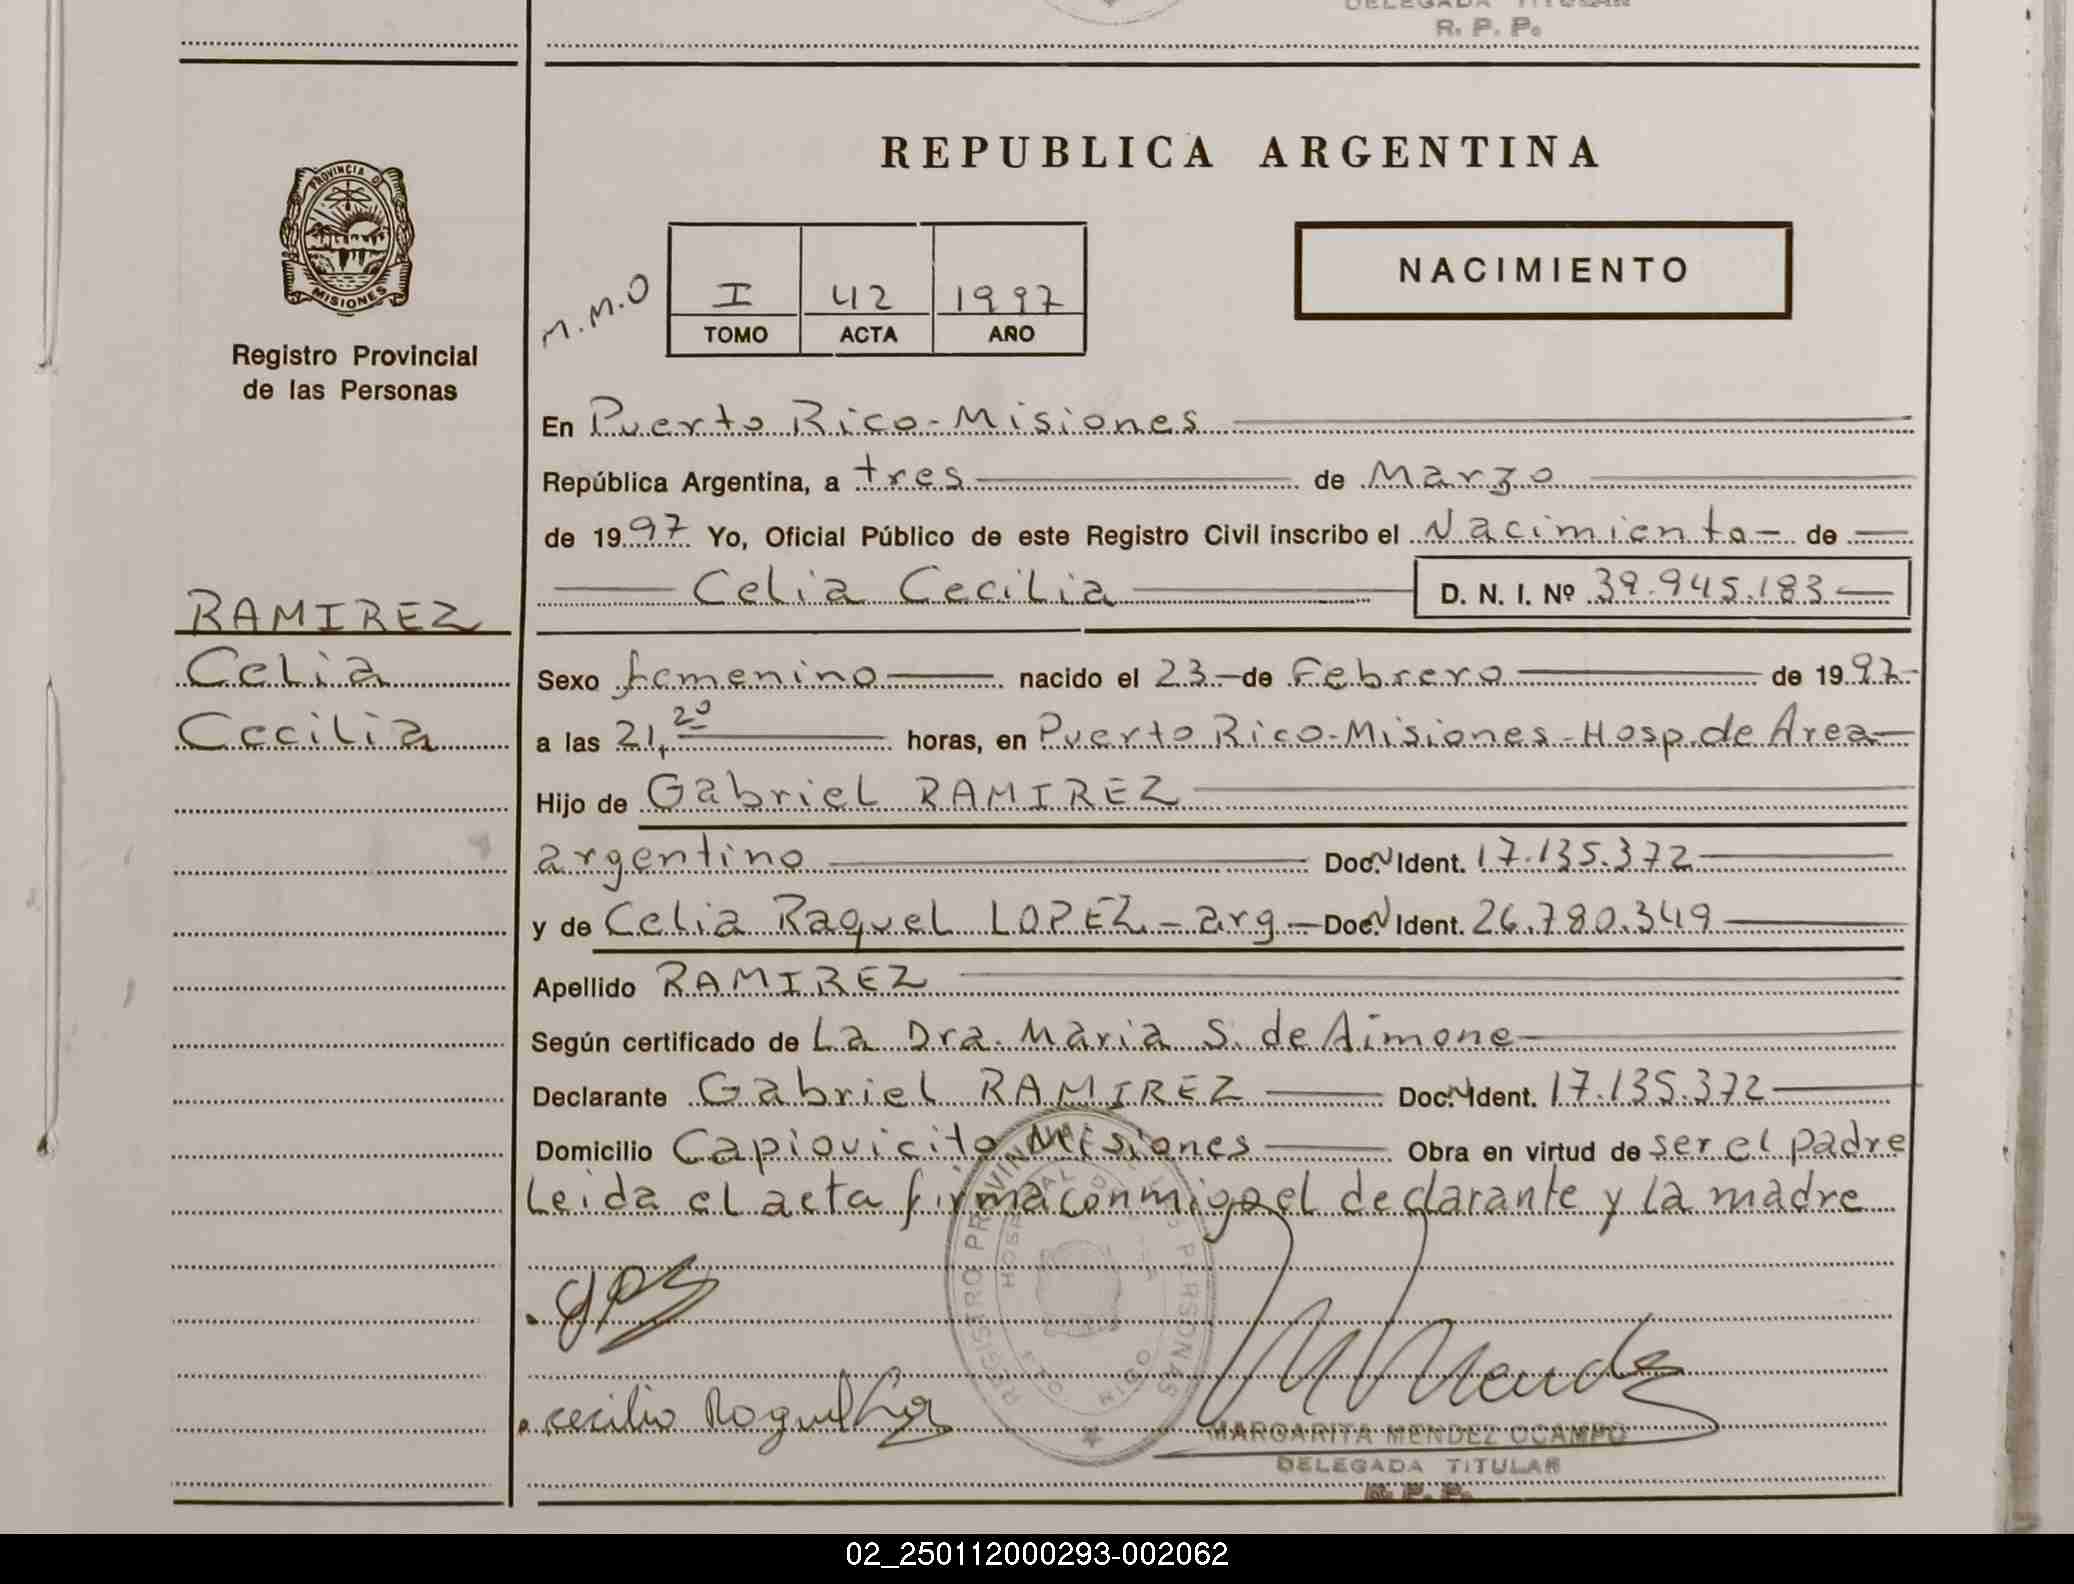 DELEGADA TITULAR
R. P. P.
REPUBLICA ARGENTINA
PROVINCIA DE
MISIONES
Registro Provincial
de las Personas
M.M.O
I 42 1997
TOMO ACTA AÑO
NACIMIENTO
En Puerto Rico - Misiones
República Argentina, a tres de Marzo
de 1997 Yo, Oficial Público de este Registro Civil inscribo el Nacimiento - de
Celia Cecilia D. N. I. Nº 39.945.183
RAMIREZ
Celia
Cecilia
Sexo femenino nacido el 23 - de Febrero de 1997
a las 21,20 horas, en Puerto Rico - Misiones - Hosp. de Area
Hijo de Gabriel RAMIREZ
argentino Doc. N Ident. 17.135.372
y de Celia Raquel LOPEZ - arg - Doc. N Ident. 26.780.349
Apellido RAMIREZ
Según certificado de La Dra. Maria S. de Aimone
Declarante Gabriel RAMIREZ Doc. N Ident. 17.135.372
Domicilio Capiovicito Misiones Obra en virtud de ser el padre
Leida el acta firma conmigo el declarante y la madre
REGISTRO PROVINCIAL PERSONAS
M Mende
MARGARITA MENDEZ OCAMPO
DELEGADA TITULAR
R. P. P.
02_250112000293-002062